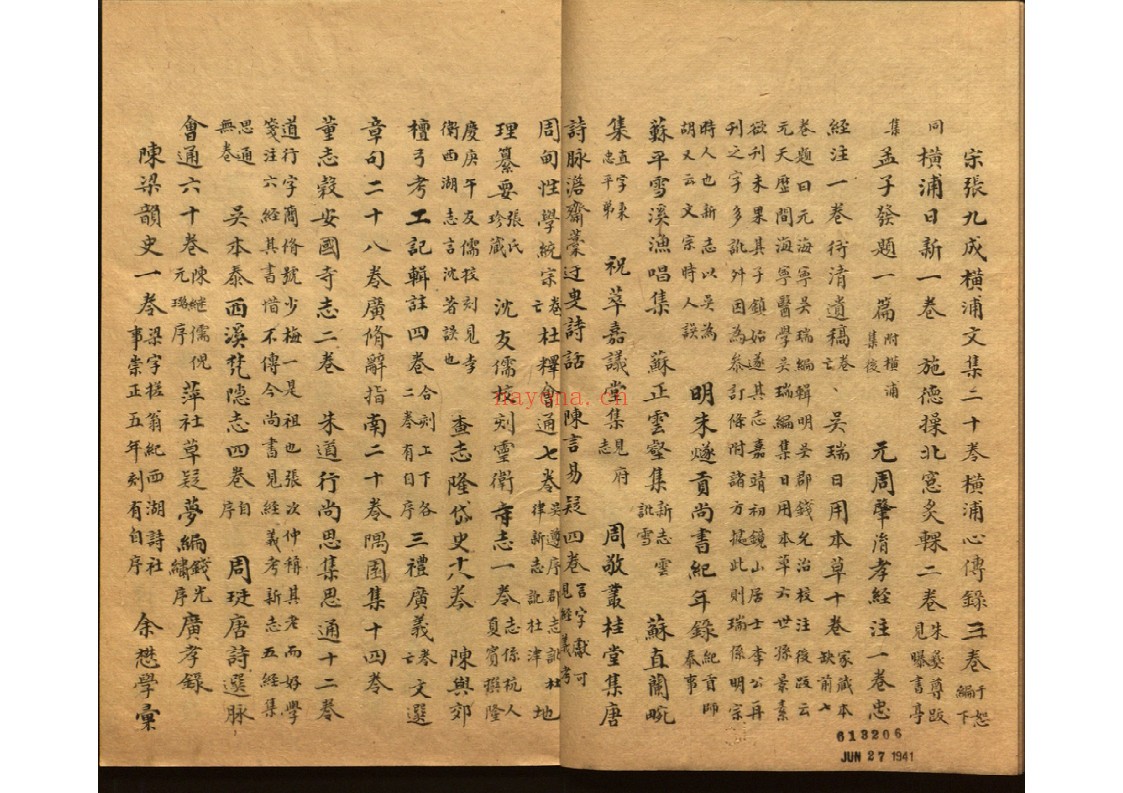 宋張九成橫浦文集二十卷橫浦心傳錄三卷于恕編下
同橫浦日新一卷 施德操北窓炙輠二卷朱彝尊跋見曝書亭
集 孟子發題一篇附橫浦集後 元周肇淯孝經注一卷忠
經注一卷行清遺稿卷亡、吳瑞日用本草十卷家藏本缺前七
卷題曰元海寧吳瑞編輯明吳郡錢允治校注後跋云
元天歷間海寧醫學吳瑞編集日用本草六世孫景素
欲刊未果其子鎮始遂其志嘉靖初鏡山居士李公再
刊之字多訛舛因為參訂條附諸方據此則瑞係明宗
時人也新志以吳為胡又云文宗時人誤 明朱燧貢尚書紀年錄紀貢師泰事
蘇平雪溪漁唱集 蘇正雲壑集新志雲訛雪 蘇直蘭畹
集直字秉忠平弟 祝萃嘉議堂集見府志 周敬叢桂堂集唐
詩脉澹齋藁过叟詩話 陳言易疑四卷言字獻可見經義考
周甸性學統宗卷亡 杜釋會通七卷吳遵序郡志訛杜律新志訛杜津 地
理纂要張氏珍藏 沈友儒校刻靈衛廟志一卷志係杭人夏賓撰隆
慶庚午友儒校刻見李衛西湖志言沈著誤也 查志隆岱史十八卷 陳與郊
檀弓考工記輯註四卷合刻上下各二卷有自序 三禮廣義卷亡 文選
章句二十八卷廣脩辭指南二十卷隅園集十四卷
董志穀安國寺志二卷 朱道行尚思集思通十二卷
道行字商脩號少梅一是祖也張次仲稱其老而好學
箋注六經其書惜不傳今尚書見經義考新志五經集
思通無卷 吳本泰西溪梵隱志四卷自序 周珽唐詩選脉
會通六十卷陳繼儒倪元璐序 萍社草疑夢編錢光繡序 廣孝錄
陳梁韻史一卷梁字搓翁紀西湖詩社事崇正五年刻有自序 余懋學彙
hayuna.cn
613206
JUN 27 1941